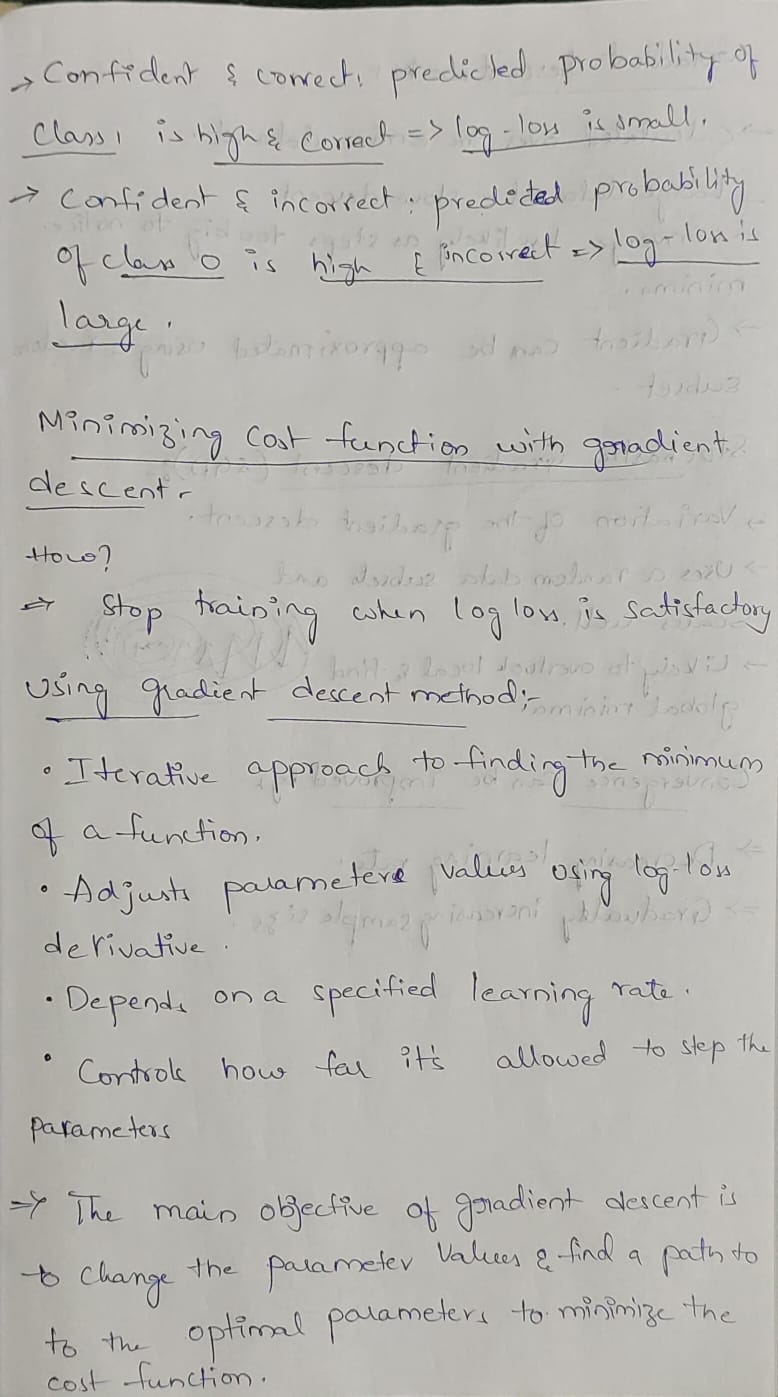 → Confident & correct: predicted probability of
Class 1 is high & correct => log-loss is small.
→ Confident & incorrect: predicted probability
of class 0 is high & incorrect => log-loss is
large.
Minimizing cost function with gradient
descent-
How?
⇒ Stop training when log loss is satisfactory
Using gradient descent method:-
• Iterative approach to finding the minimum
of a function.
• Adjusts parameters values using log-loss
derivative.
• Depends on a specified learning rate.
• Controls how far it's allowed to step the
parameters
=> The main objective of gradient descent is
to change the parameter values & find a path to
to the optimal parameters to minimize the
cost function.